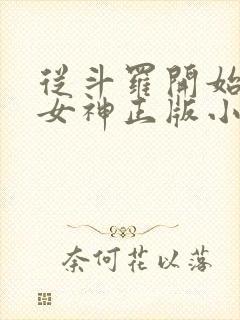 從斗羅開始
女神正版小
奈何花以落